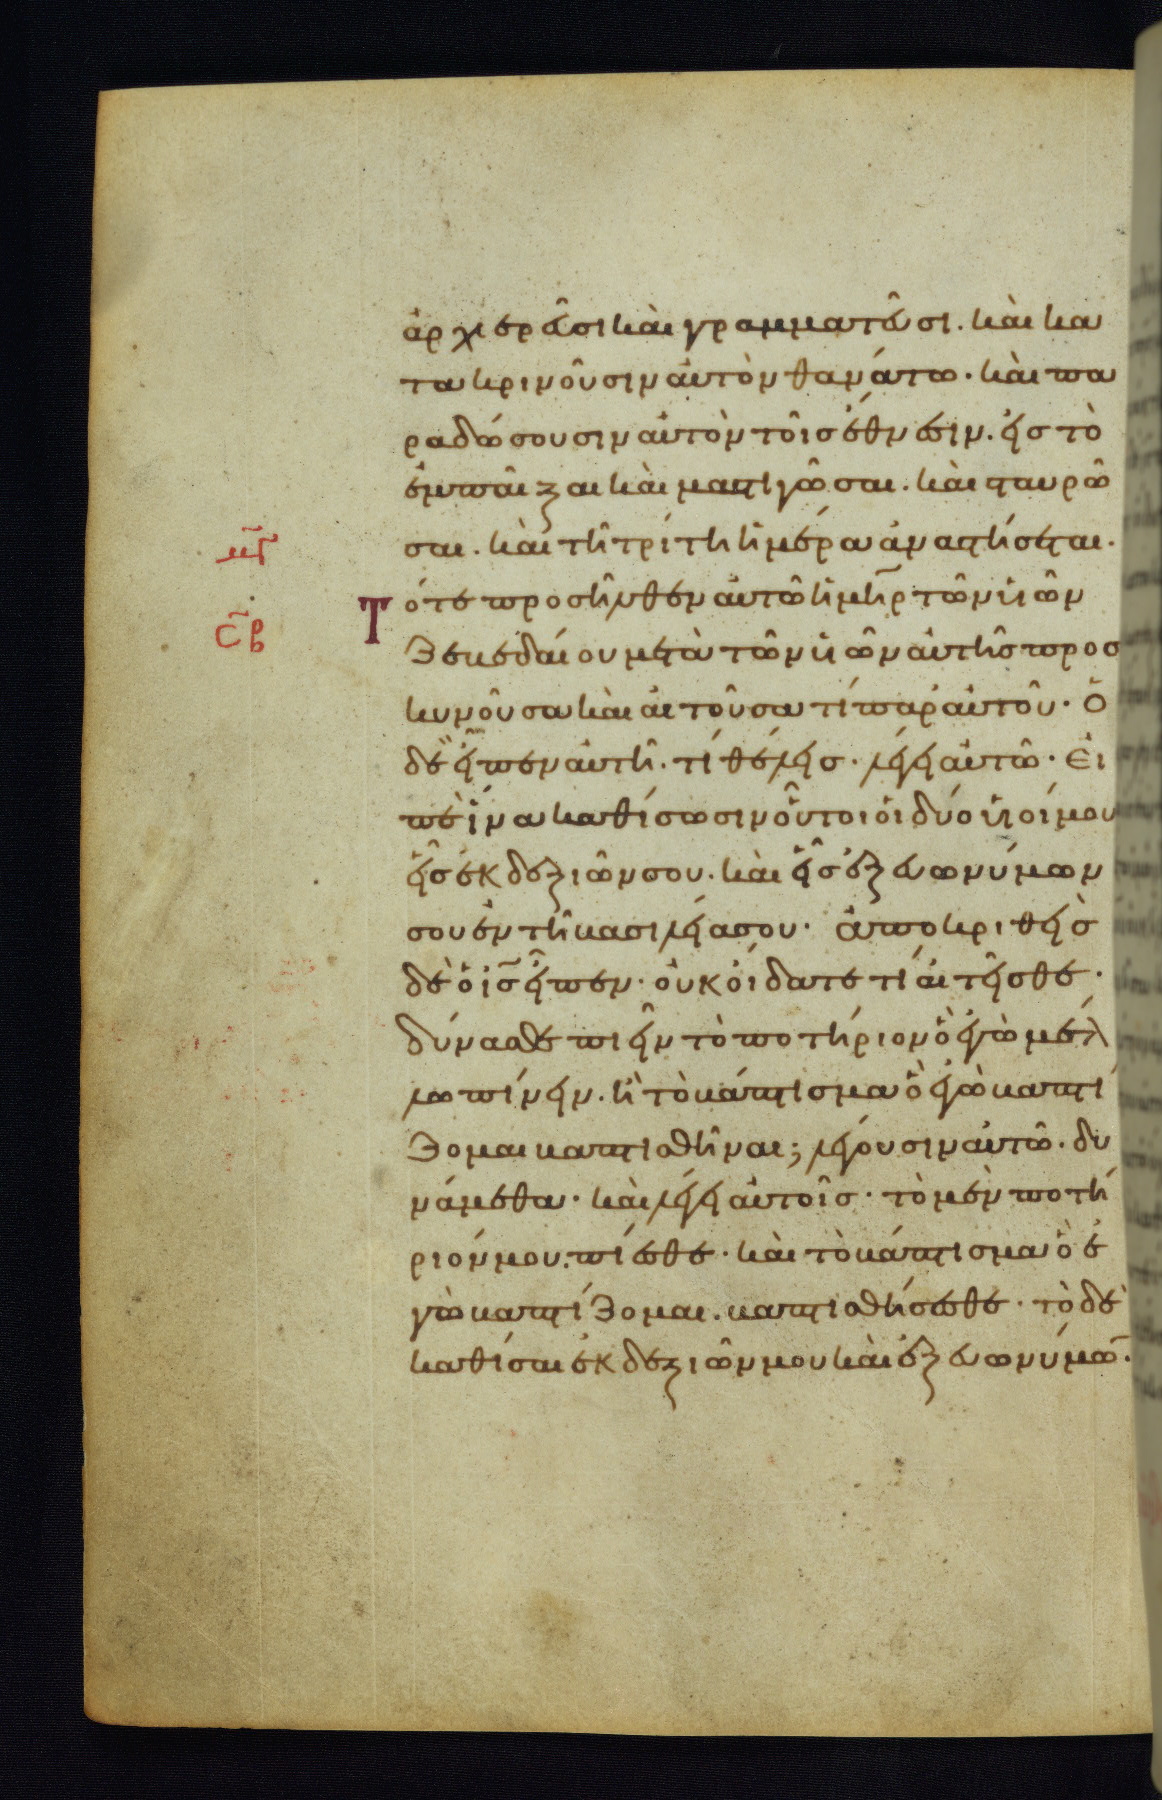 ἀρχιερεῦσι καὶ γραμματεῦσι. καὶ κα
τακρινοῦσιν αὐτὸν θανάτω· καὶ πα
ραδώσουσιν αὐτὸν τοῖς ἔθνεσιν. εἰς τὸ
ἐμπαῖξαι καὶ μαστιγῶσαι. καὶ σταυρῶ
σαι. καὶ τῆ τρίτη ἡμέρα ἀναστήσεται.
Τότε προσῆλθεν αὐτῶ ἡ μη̅ρ τῶν υἱῶν
Ζεβεδαίου μετὰ τῶν υἱῶν αὐτῆς προσ
κυνοῦσα καὶ αἰτοῦσα τί παρ' αὐτοῦ· Ὁ
δὲ εἶπεν αὐτῆ. τί θέλεις· λέγει αὐτῶ· Εἰ
πὲ ἵνα καθίσωσιν οὗτοι οἱ δύο υἱοί μου
εἷς ἐκ δεξιῶν σου. καὶ εἷς ἐξ εὐωνύμων
σου ἐν τῆ βασιλεία σου· ἀποκριθεὶς
δὲ ὁ ι̅ς̅ εἶπεν· οὐκ οἴδατε τί αἰτεῖσθε·
δύνασθε πιεῖν τὸ ποτήριον ὃ ἐγὼ μέλ
λω πίνειν. ἢ τὸ βάπτισμα ὃ ἐγὼ βαπτί
ζομαι βαπτισθῆναι; λέγουσιν αὐτῶ· δυ
νάμεθα· καὶ λέγει αὐτοῖς· τὸ μὲν ποτή
ριόν μου πίεσθε· καὶ τὸ βάπτισμα ὃ ἐ
γὼ βαπτίζομαι. βαπτισθήσεσθε· τὸ δὲ
καθίσαι ἐκ δεξιῶν μου καὶ ἐξ εὐωνύμω̅.
μ̅γ̅
σ̅β